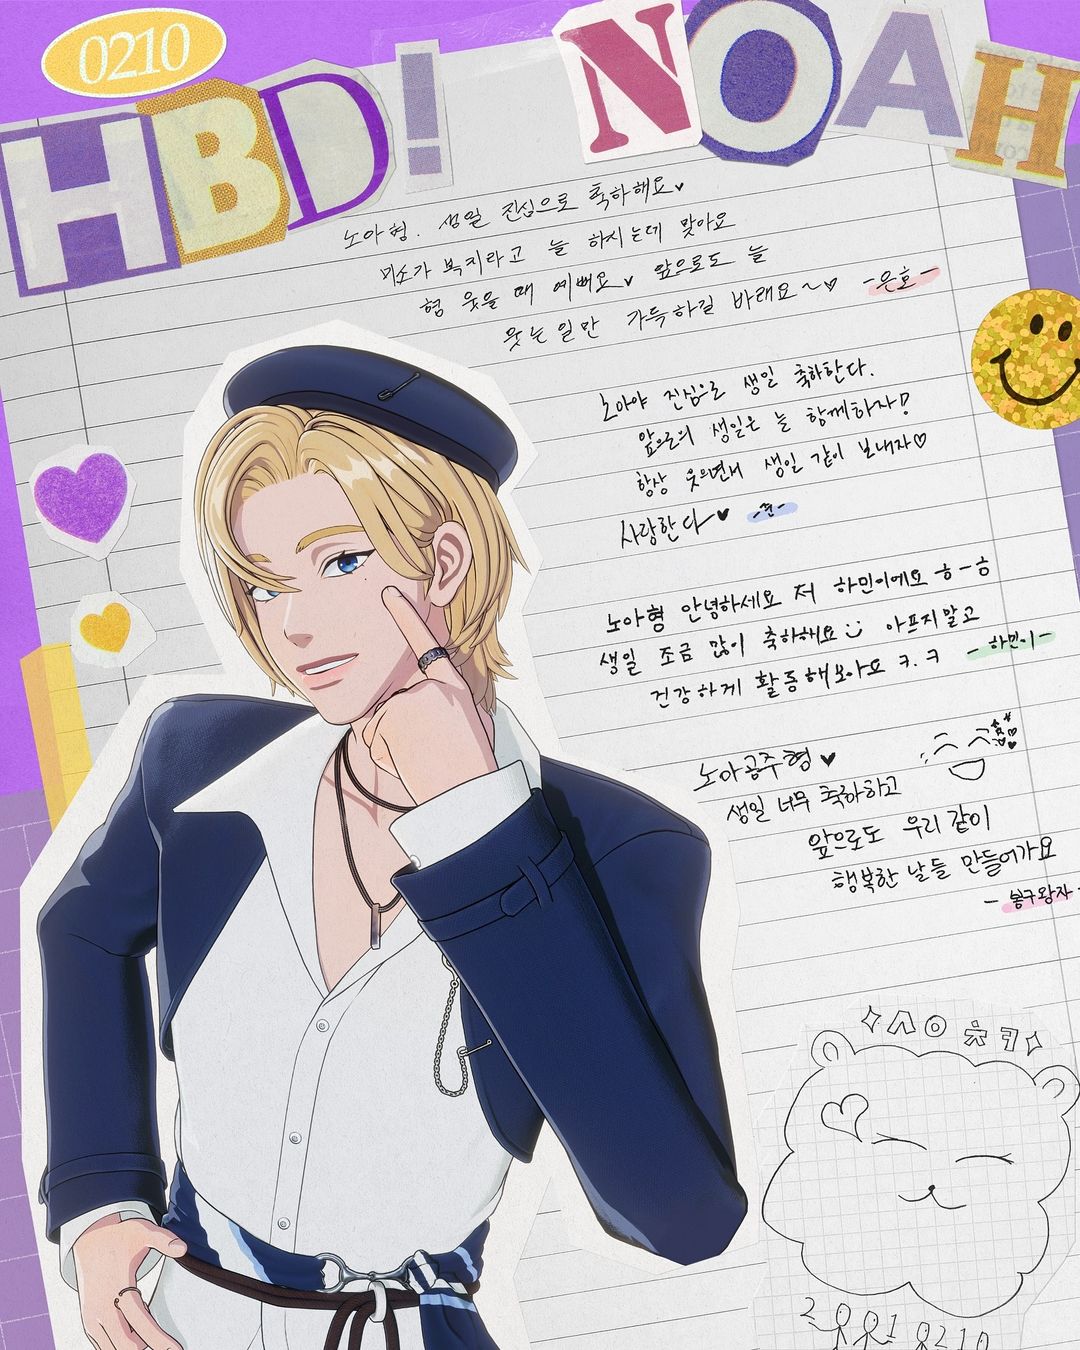 0210
HBD! NOAH
노아형. 생일 진심으로 축하해요♥
미소가 복지라고 늘 하시는데 맞아요
형 웃을 때 예뻐요♥ 앞으로도 늘
웃는일만 가득하길 바래요~♡ -은호-
노아야 진심으로 생일 축하한다.
앞으로의 생일은 늘 함께하자!
항상 웃으면서 생일 같이 보내자♡
사랑한다~♥
노아형 안녕하세요 저 하민이에요 ㅎ-ㅎ
생일 조금 많이 축하해요 아프지말고
건강하게 활동해보아요 ㅋ.ㅋ -하민이-
노아공주형♥
생일 너무 축하하고
앞으로도 우리 같이
행복한 날들 만들어가요
-봉구왕자-
ㅅㅇㅊㅋ